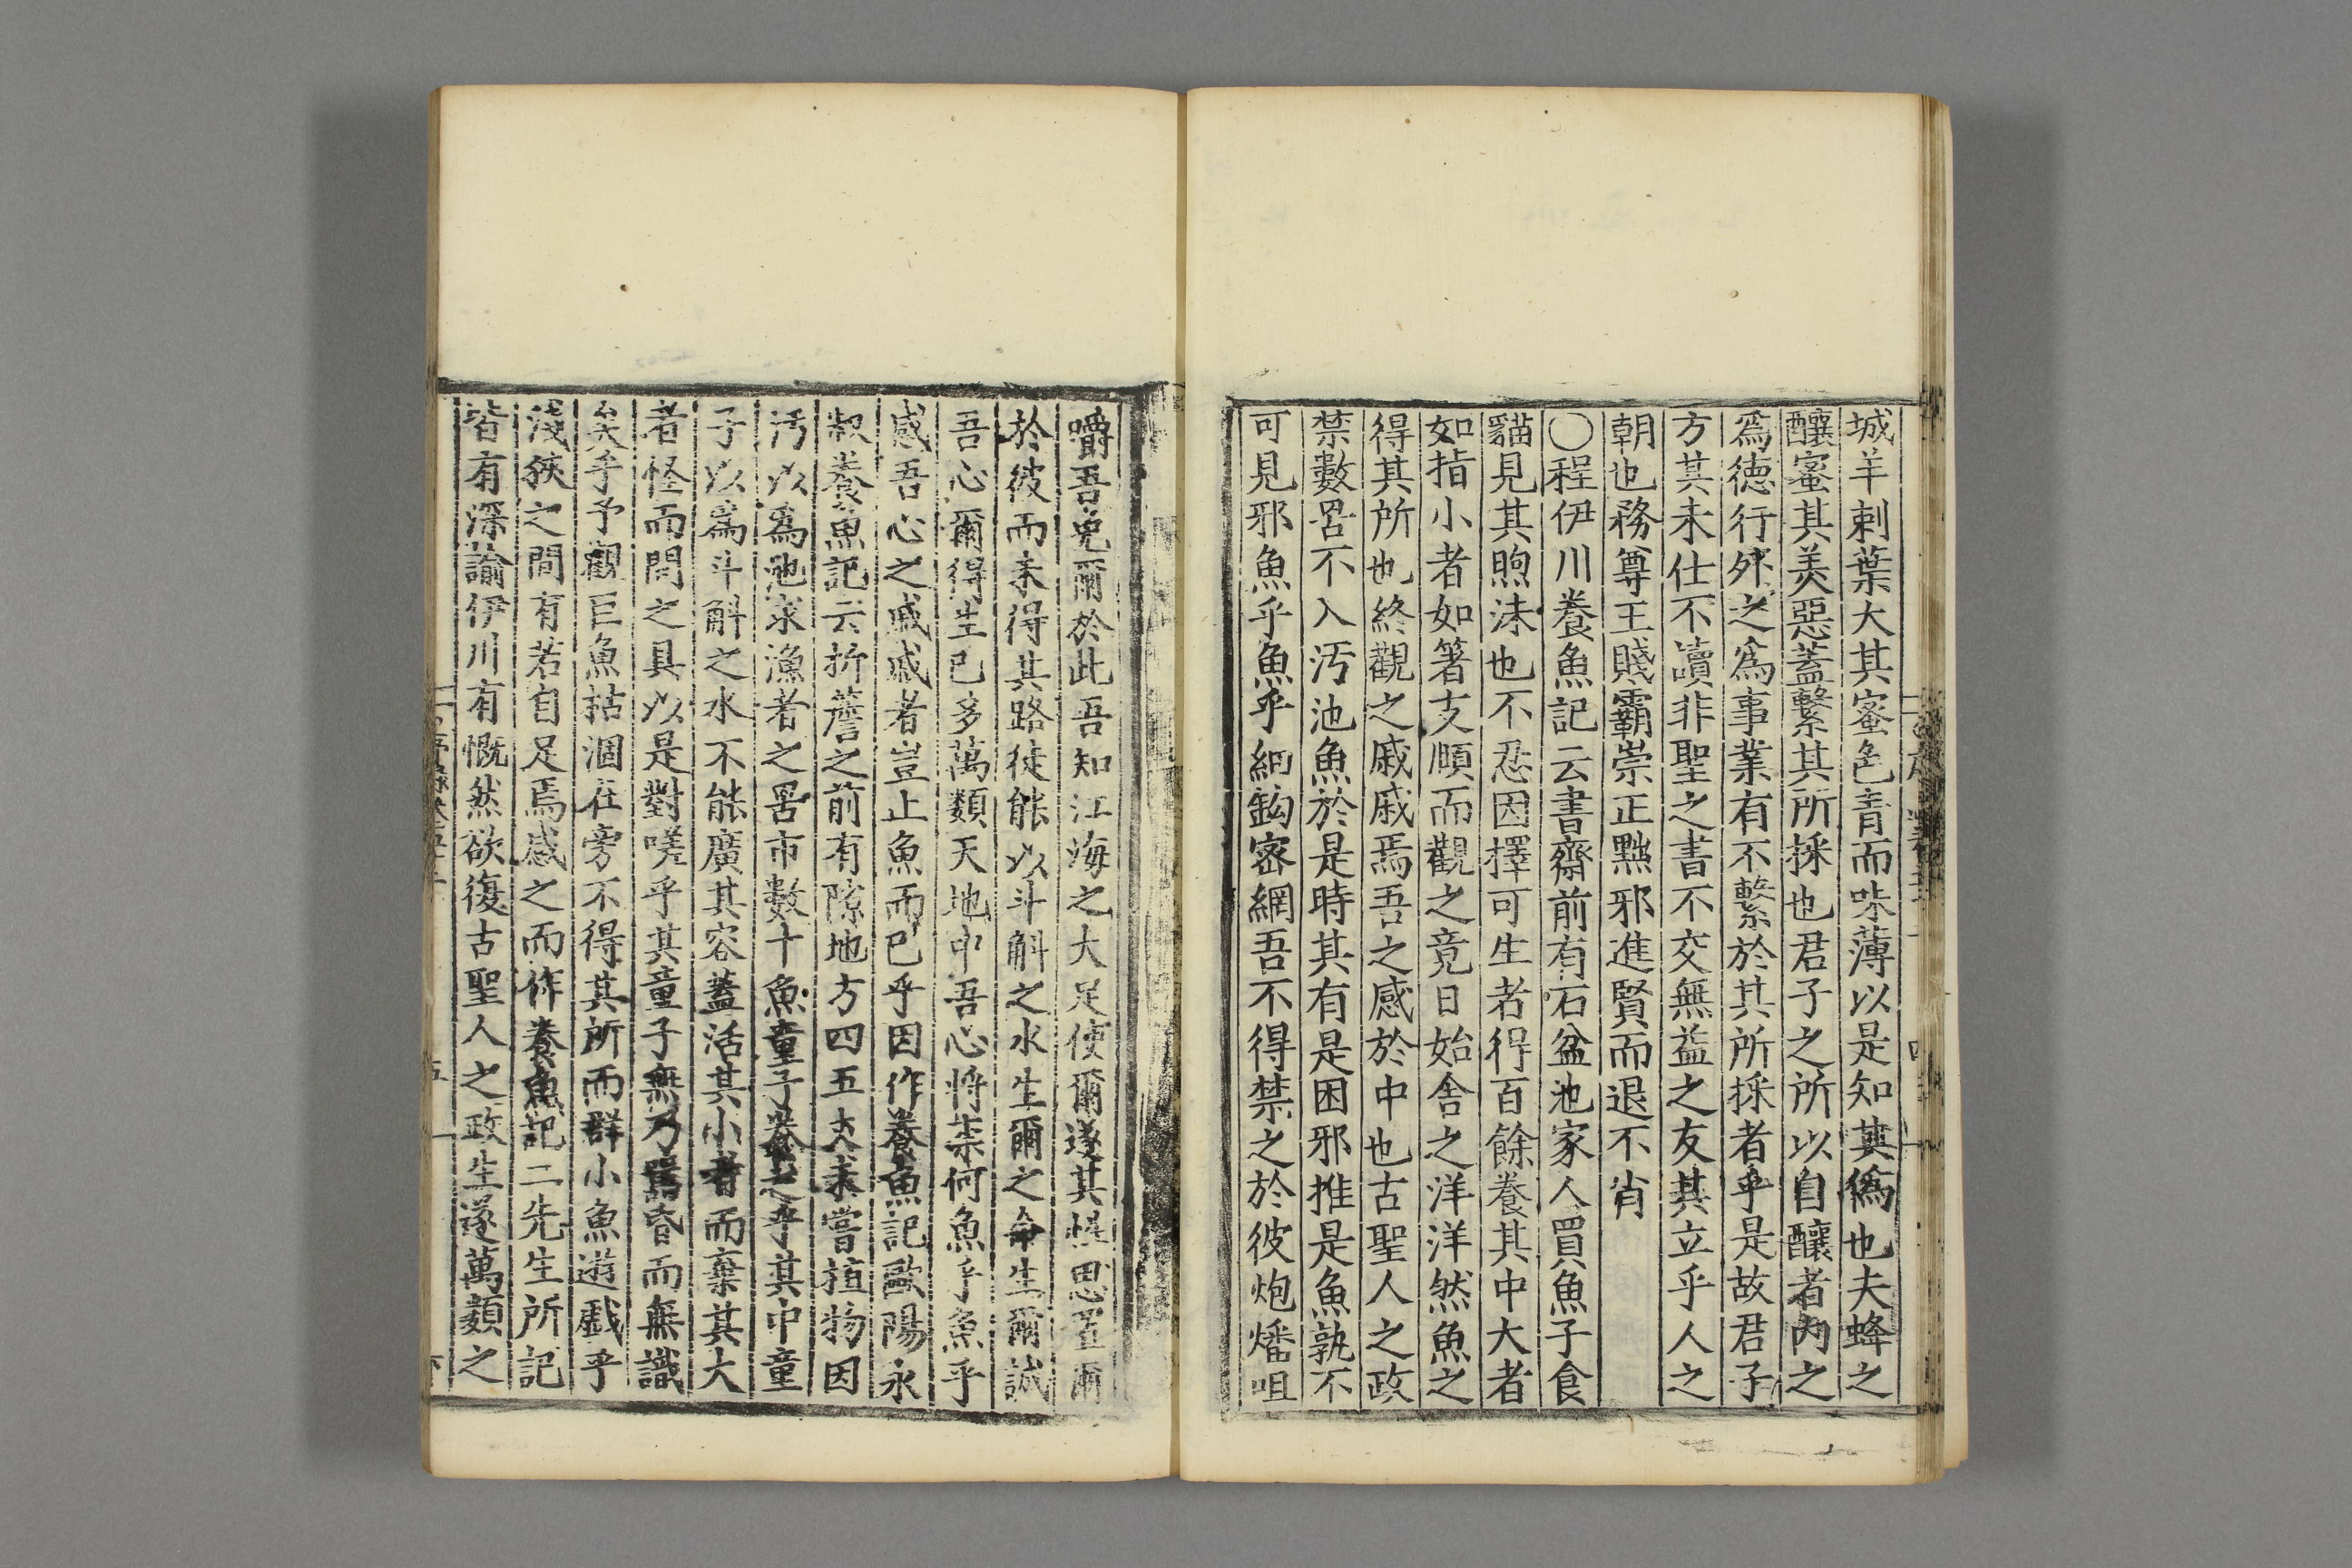 城羊刺葉大其蜜色青而味薄以是知其僞也夫蜂之
釀蜜其美惡蓋繫其所採也君子之所以自釀者內之
爲德行外之爲事業有不繫於其所採者乎是故君子
方其未仕不讀非聖之書不交無益之友其立乎人之
朝也務尊王賤霸崇正黜邪進賢而退不肖
○程伊川養魚記云書齋前有石盆池家人買魚子食
貓見其煦沫也不忍因擇可生者得百餘養其中大者
如指小者如箸支頤而觀之竟日始舍之洋洋然魚之
得其所也終觀之戚戚焉吾之感於中也古聖人之政
禁數罟不入汚池魚於是時其有是困邪推是魚孰不
可見邪魚乎魚乎細鈎密網吾不得禁之於彼炮燔咀
嚼吾免爾於此吾知江海之大足使爾遂其性思置爾
於彼而未得其路徒能以斗斛之水生爾之命生爾誠
吾心爾得生已多萬類天地中吾心將柰何魚乎魚乎
感吾心之戚戚者豈止魚而已乎因作養魚記歐陽永
叔養魚記云折簷之前有隙地方四五丈未嘗植物因
汚以爲池求漁者之罟市數十魚童子養之乎其中童
子以爲斗斛之水不能廣其容蓋活其小者而棄其大
者怪而問之具以是對嗟乎其童子無乃嚚昏而無識
矣乎予觀巨魚枯涸在旁不得其所而群小魚遊戲乎
淺狹之間有若自足焉感之而作養魚記二先生所記
皆有深諭伊川有慨然欲復古聖人之政生遂萬類之